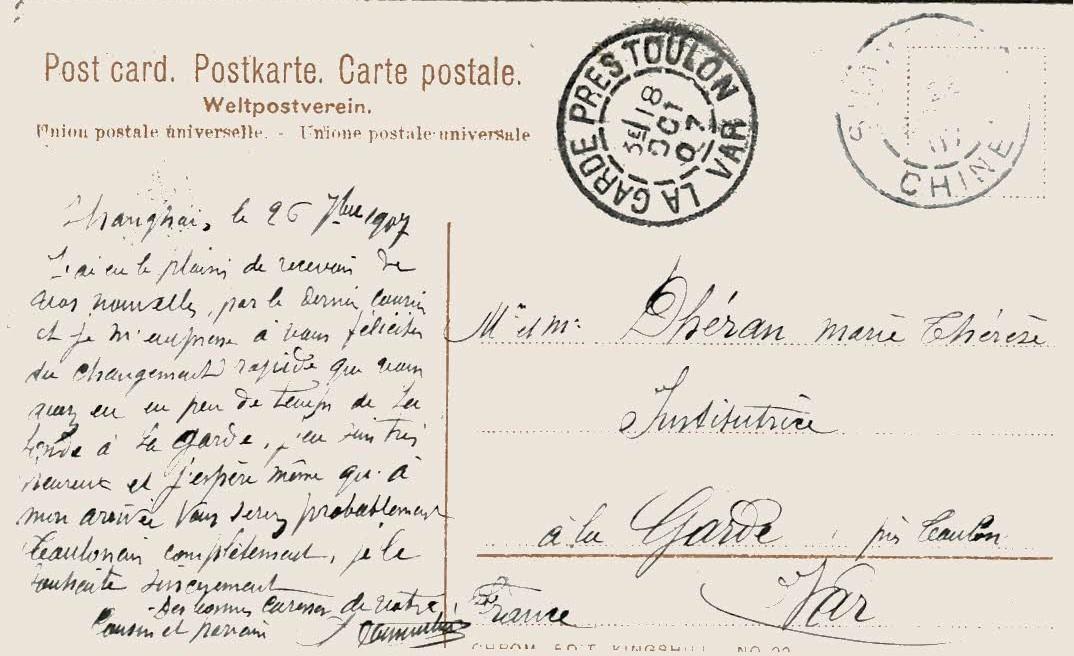 Post card. Postkarte. Carte postale.
Weltpostverein.
Union postale universelle. - Unione postale universale
LA GARDE PRES TOULON VAR
3E 18
OCT
07
CHINE
Shanghai, le 26 7bre 1907
J'ai eu le plaisir de recevoir de
vos nouvelles, par le dernier courrier
et je m'empresse à vous féliciter
du changement rapide que vous
avez eu en peu de temps de La
Londe à La Garde, j'en suis très
heureux et j'espère même qu'à
mon arrivée vous serez probablement
Toulonais complètement, je le
souhaite sincèrement
Des bonnes caresses de votre
Cousin et parrain
Mr et Mr Théran marie Thérèse
Institutrice
à la Garde près Toulon
Var
France
CHROM. EDIT KINGSHILL NO 22